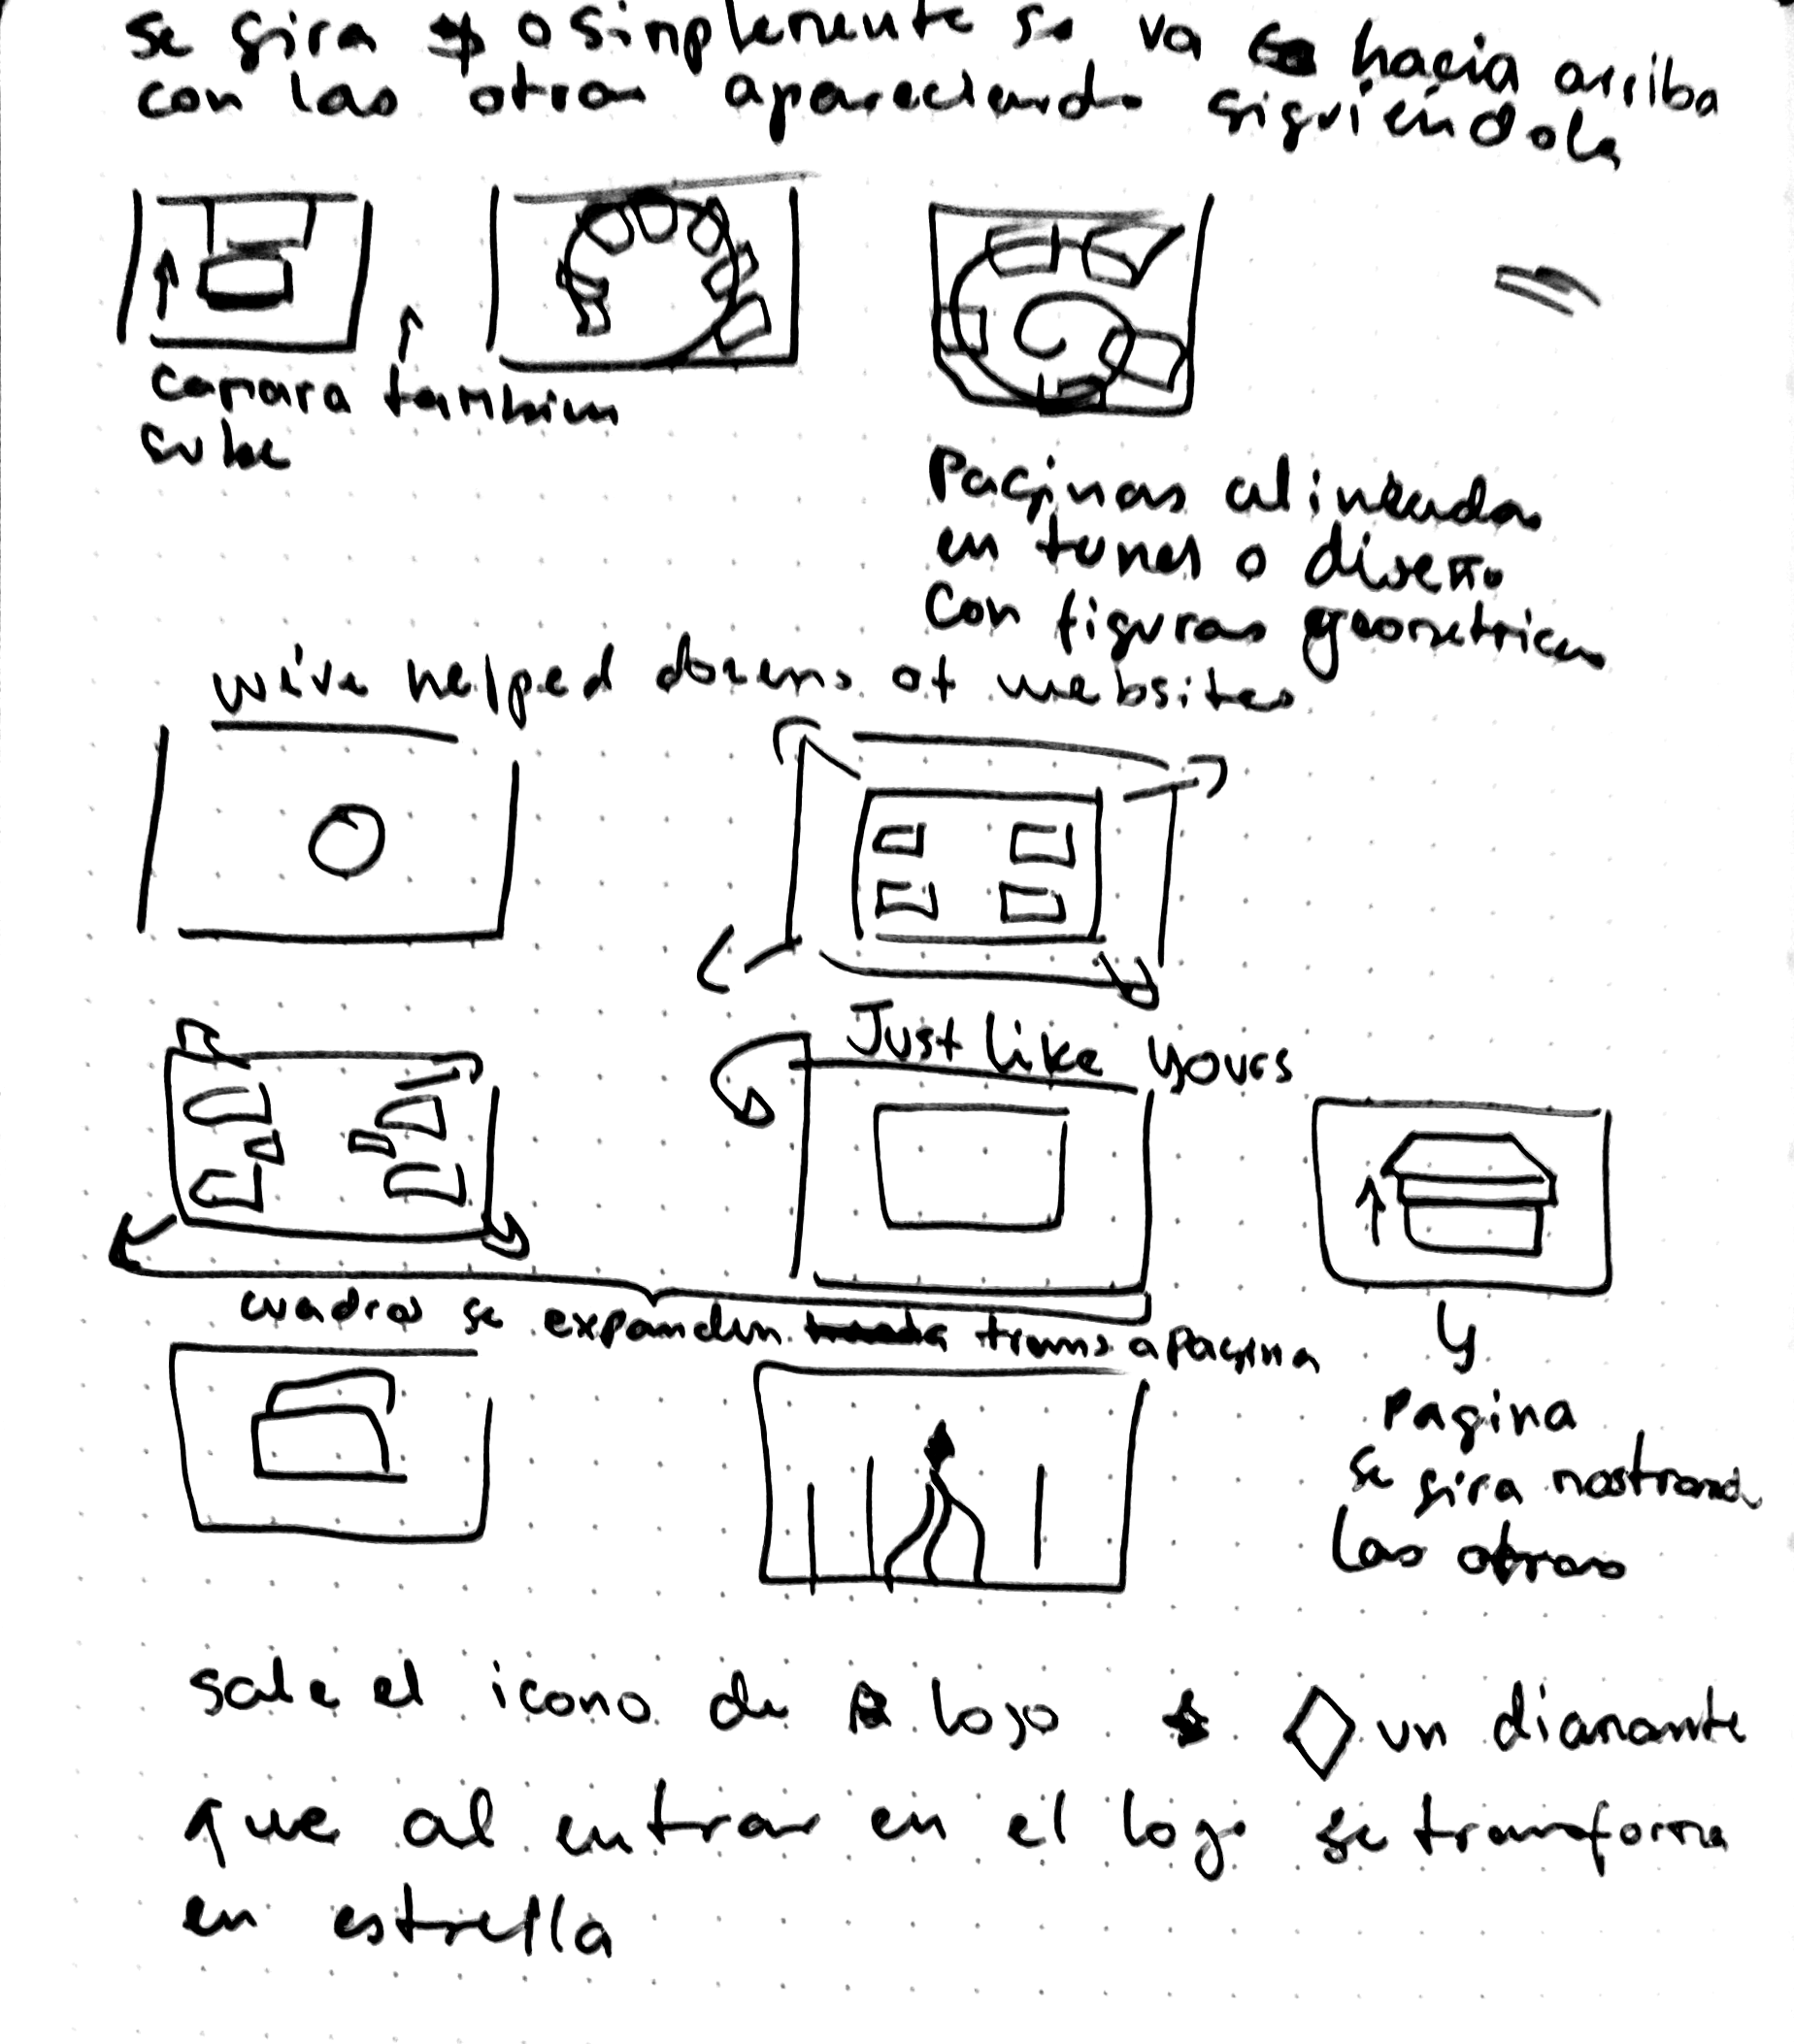 se gira o simplemente se va hacia arriba
con las otras apareciendo siguiéndola
camara tambien
sube
Paginas alineadas
en tunel o diseño
con figuras geometricas
we've helped dozens of websites
Just like yours
cuadros se expanden trans a pagina
y
pagina
se gira mostrando
las otras
sale el icono de logo un diamante
que al entrar en el logo se transforma
en estrella